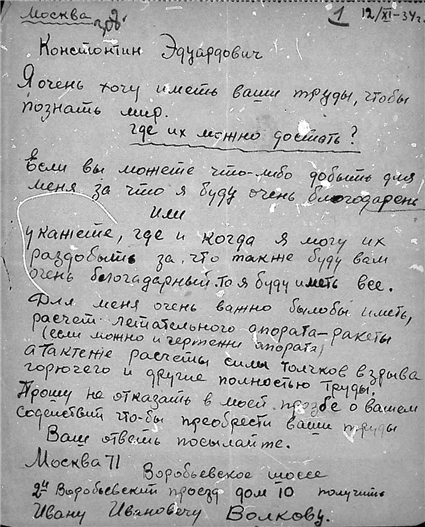 Москва
1 12/XI-34г.
Констонтин Эдуардович
Я очень хочу иметь ваши труды, чтобы
познать мир.
где их можно достать?
Если вы можете что-либо добыть для
меня за что я буду очень благодарен
Или
укажете, где и когда я могу их
раздобыть за, что также буду вам
очень белогадарный. то я буду иметь все.
Для меня очень важно былобы иметь,
расчет летательного апората-ракеты
(если можно и чертежи апората)
а также расчеты силы толчков взрыва
горючего и другие полностью труды.
Прошу не отказать в моей прозбе о вашем
содействий что-бы преобрести ваши труды
Ваш ответь посылайте.
Москва 71
Воробьевское шоссе
2й Воробьевский проезд дом 10 получить
Ивану Ивановечу Волкову.